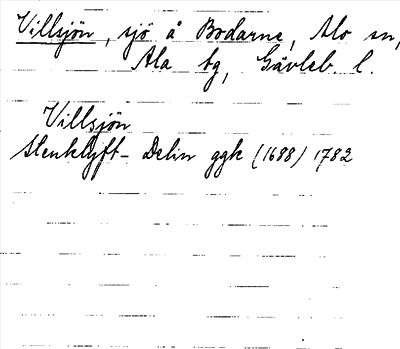 Villsjön, sjö å Bodarne, Mo sn,
Ala tg, Gävleb. l.
Villsjön
Stenklyft- Delin ggk (1688) 1782